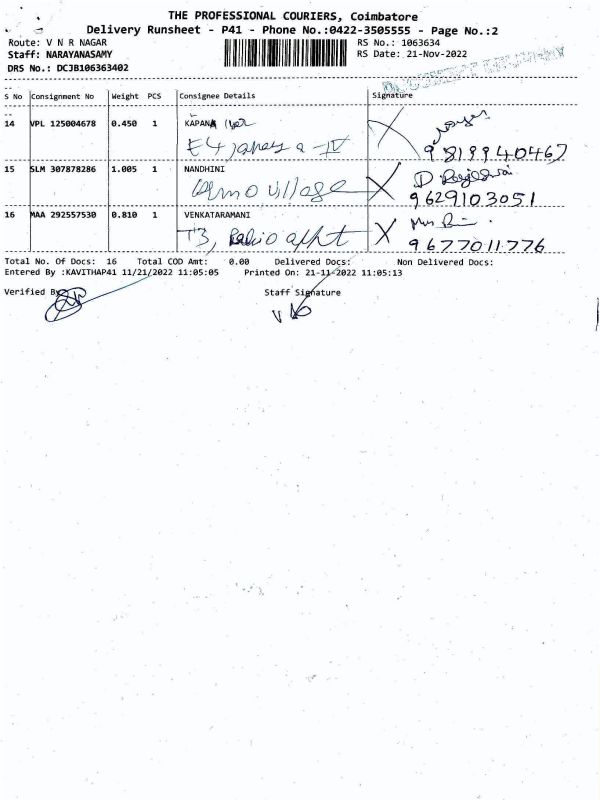 THE PROFESSIONAL COURIERS, Coimbatore
Delivery Runsheet - P41 - Phone No.:0422-3505555 - Page No.:2
Route: V N R NAGAR RS No.: 1063634
Staff: NARAYANASAMY RS Date: 21-Nov-2022
DRS No.: DCJB106363402
S No Consignment No Weight PCS Consignee Details Signature
14 VPL 125004678 0.450 1 KAPANA
E4, a - IV 9819940467
15 SLM 307878286 1.005 1 NANDHINI D
village 9629103051
16 MAA 292557530 0.810 1 VENKATARAMANI
T3, appt 9677011776
Total No. Of Docs: 16 Total COD Amt: 0.00 Delivered Docs: Non Delivered Docs:
Entered By :KAVITHAP41 11/21/2022 11:05:05 Printed On: 21-11-2022 11:05:13
Verified By Staff Signature